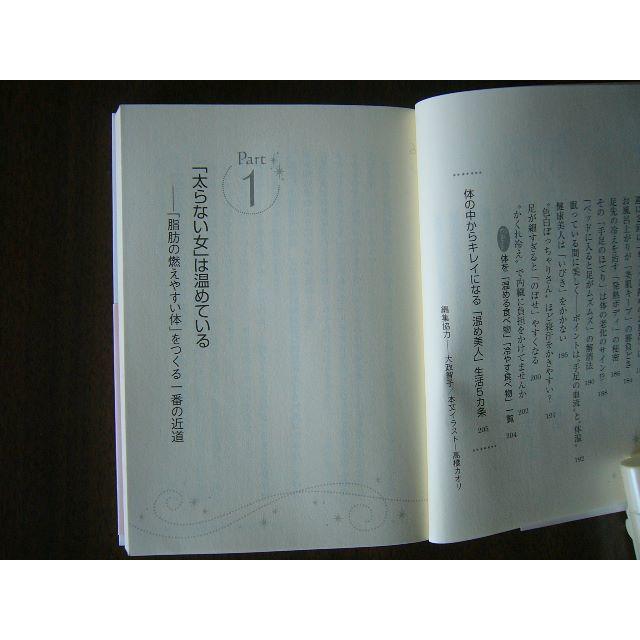 足先の冷えを治す「発熱ボディ」の秘密 186
その「手足のほてり」は体の老化のサイン!? 188
「ベッドに入ると足がムズムズ」の解消法 190
眠っている間に美しく――ポイントは“手足の血流”と“体温” 192
健康美人は「いびき」をかかない 195
“色白ぽっちゃりさん”ほど寝汗をかきやすい? 194
足が細すぎると「のぼせ」やすくなる 200
“かくれ冷え”で内臓に負担をかけてませんか 202
体を「温める食べ物」「冷やす食べ物」一覧 204
体の中からキレイになる「温め美人」生活5カ条 205
編集協力――大政智子/本文イラスト――高橋カオリ
Part
1
「太らない女」は温めている
――「脂肪の燃えやすい体」をつくる一番の近道